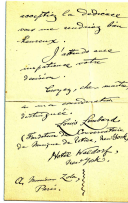 acceptiez la dédicace
vous me rendriez bien
heureux.
J'attends avec
impatience votre
décision.
Croyez, cher maître
à ma considération
distinguée.
Louis Lombard
(Fondateur du Conservatoire
de Musique de Utica, New York)
Hotel Waldorf,
New York.
A Monsieur Zola,
Paris.